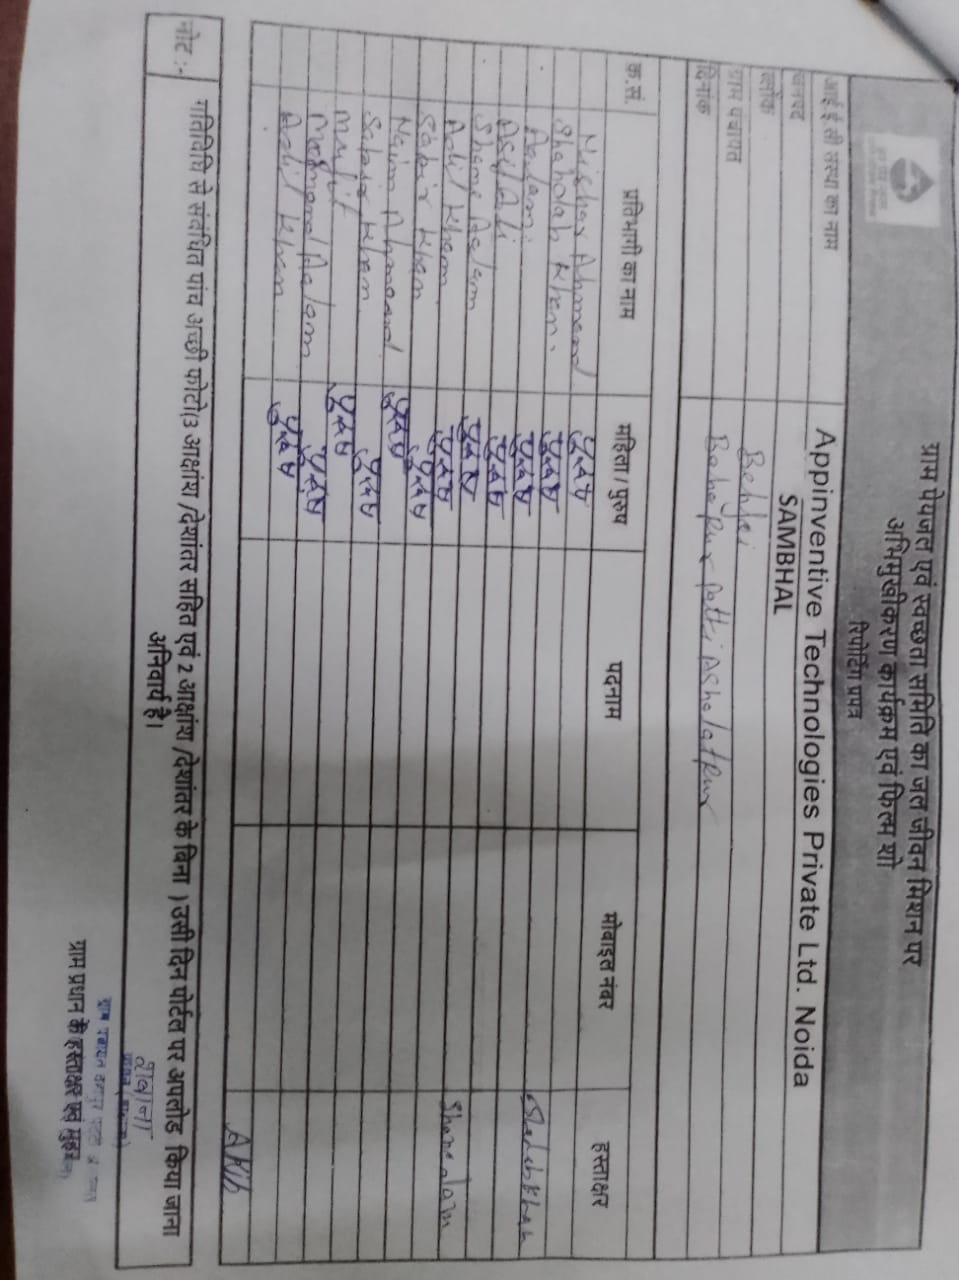 ग्राम पेयजल एवं स्वच्छता समिति का जल जीवन मिशन पर
अभिमुखीकरण कार्यक्रम एवं फिल्म शो
रिपोर्टिंग प्रपत्र
आई ई सी संस्था का नाम Appinventive Technologies Private Ltd. Noida
जनपद SAMBHAL
ब्लॉक Behjoi
ग्राम पंचायत Patti
दिनांक
क्र.सं. प्रतिभागी का नाम महिला / पुरुष पदनाम मोबाइल नंबर हस्ताक्षर
Nichar Ahmead पुरुष
Shahdab Khan पुरुष
Aalam पुरुष
Asif Ali पुरुष
Shane Aalam पुरुष
Adil Khan पुरुष
Sabir Khan पुरुष
Naim Ahmead पुरुष
Sabir Khan पुरुष
पुरुष
Aalam पुरुष
Adil Khan पुरुष
नोट :- गतिविधि से संबंधित पांच अच्छी फोटो(3 आक्षांश /देशांतर सहित एवं 2 आक्षांश /देशांतर के बिना ) उसी दिन पोर्टल पर अपलोड किया जाना
अनिवार्य है।
ग्राम प्रधान के हस्ताक्षर एवं मुहर